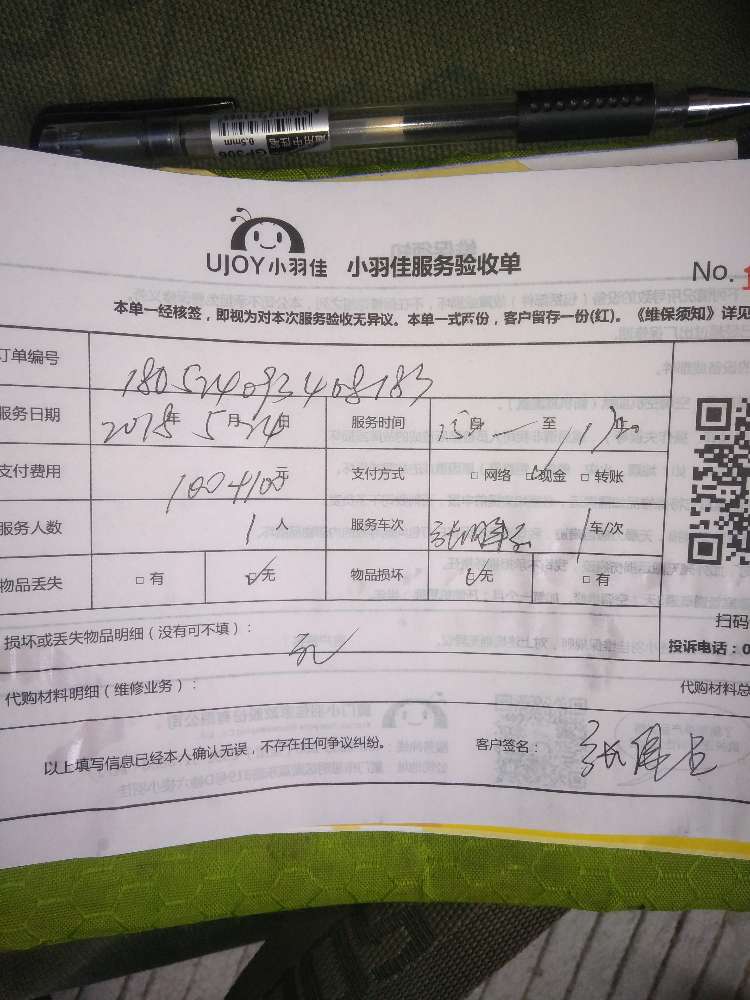 GP306
0.5mm
通用中性笔
UJOY小羽佳 小羽佳服务验收单
No. 1
本单一经核签，即视为对本次服务验收无异议。本单一式两份，客户留存一份(红)。《维保须知》详见
订单编号 180524093408183
服务日期 2018年5月24日 服务时间 至
支付费用 100+10元 支付方式 □网络 ☑现金 □转账
服务人数 1人 服务车次 1车/次
物品丢失 □有 ☑无 物品损坏 ☑无 □有
扫码
损坏或丢失物品明细（没有可不填）： 无
投诉电话：0
代购材料明细（维修业务）： 代购材料总
以上填写信息已经本人确认无误，不存在任何争议纠纷。 客户签名：